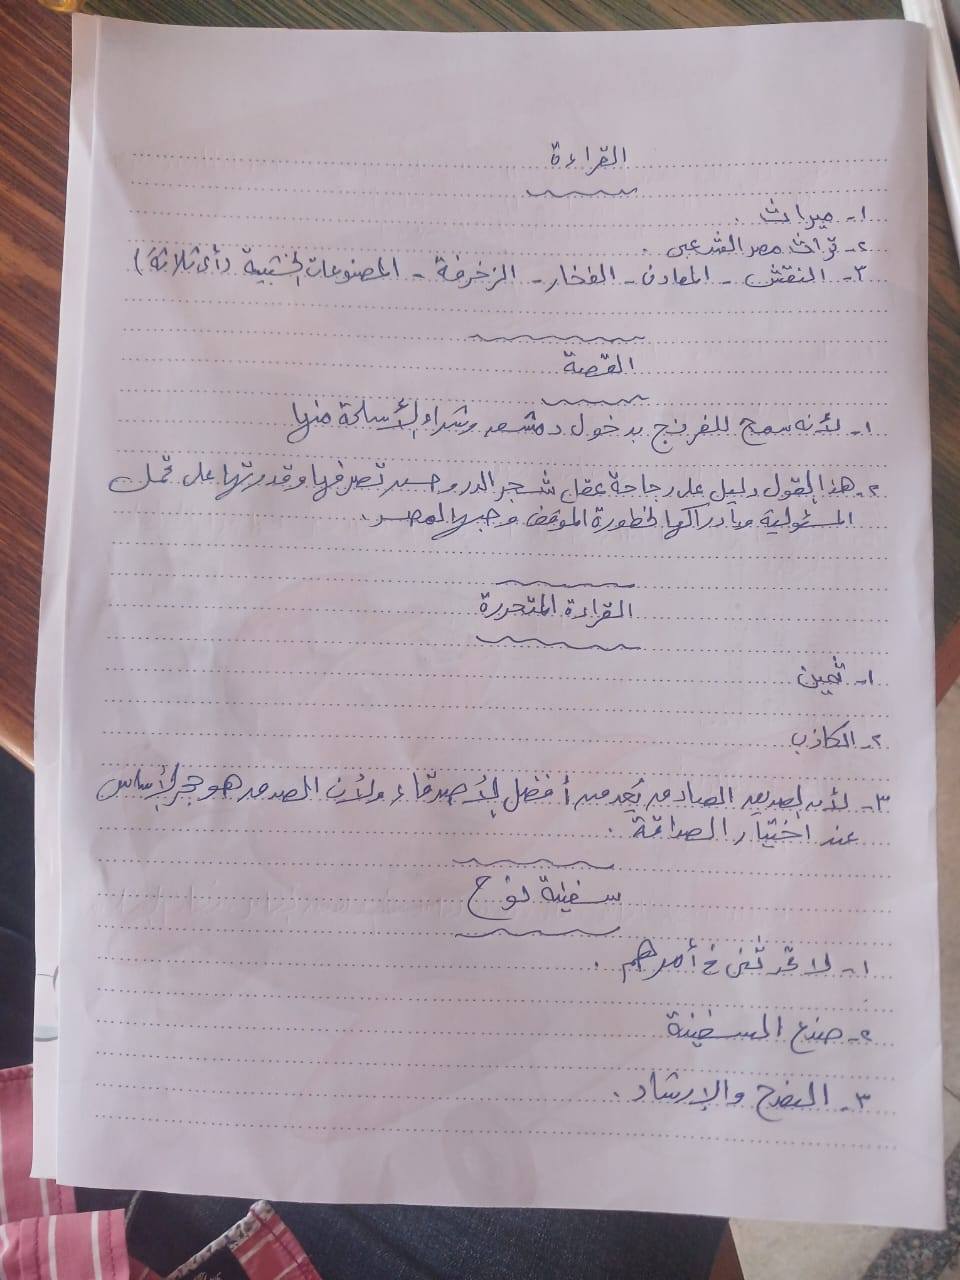 القراءة
١- ميراث .
٢- تراث مصر الشعبى .
٣- النقش - المعادن - الفخار - الزخرفة - المصنوعات الخشبية (أى ثلاثة) .
القصة
١- لأنه سمح للفرنج بدخول دمشق وشراء الأسلحة منها
٢- هذا القول دليل على رجاحة عقل شجر الدر وحسن تصرفها وقدرتها على تحمل
المسئولية وإدراكها لخطورة الموقف وحبها لمصر .
القراءة المتحررة
١- ثمين
٢- الكاذب
٣- لأن الصديق الصادق يُعد من أفضل الأصدقاء ولأن الصدق هو حجر الأساس
عند اختيار الصداقة .
سفينة نوح
١- لا تحدثنى فى أمرهم .
٢- صنع السفينة
٣- النصح والإرشاد .